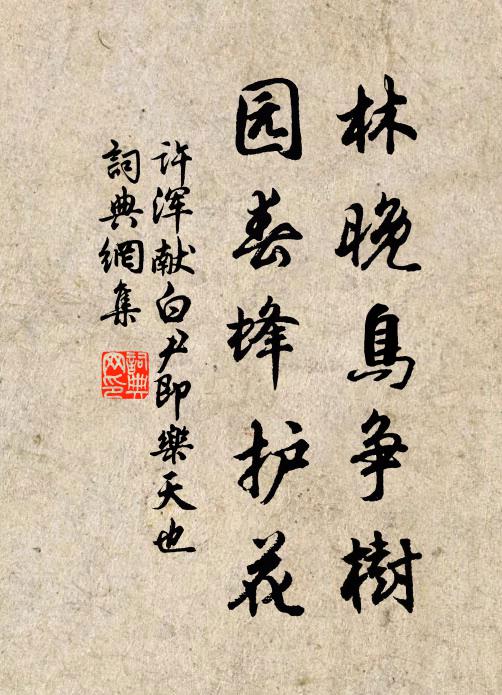 林晚鳥争樹
园春蜂护花
许浑献白尹即樂天也
詞典網集
詞典网印